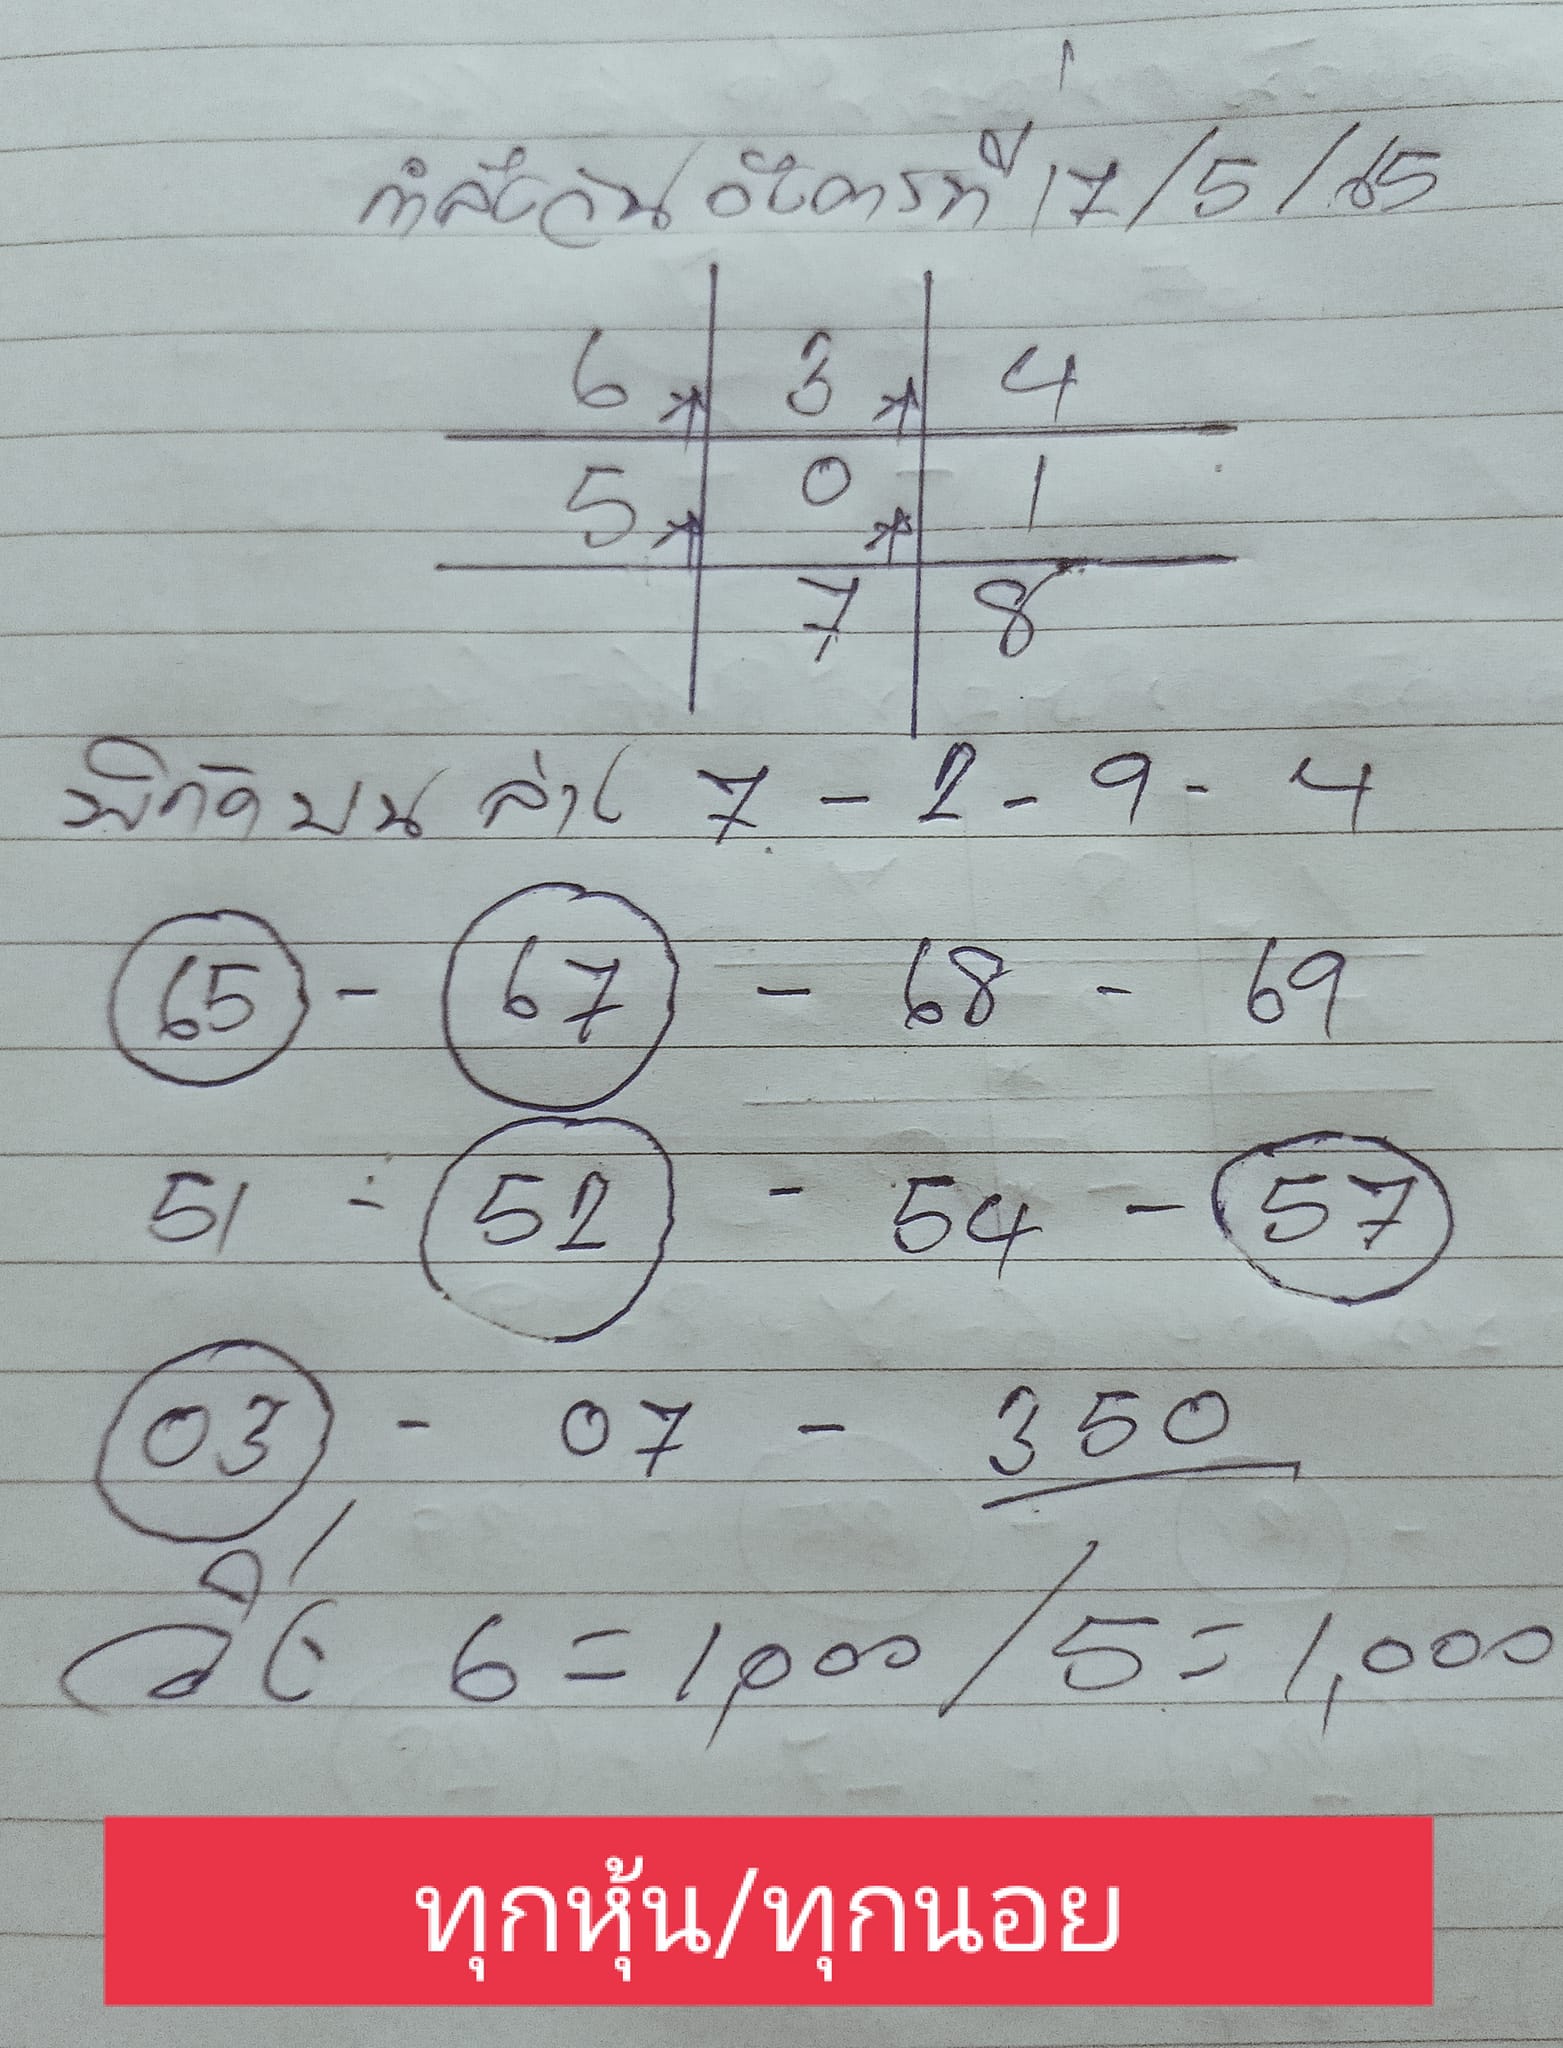 กำลังวันอังคารที่ 17/5/65
6 3 4
5 0 1
7 8
พิกัดบน ล่าง 7 - 2 - 9 - 4
65 - 67 - 68 - 69
51 - 52 - 54 - 57
03 - 07 - 350
วิ่ง 6 = 1,000 / 5 = 1,000
ทุกหุ้น/ทุกนอย